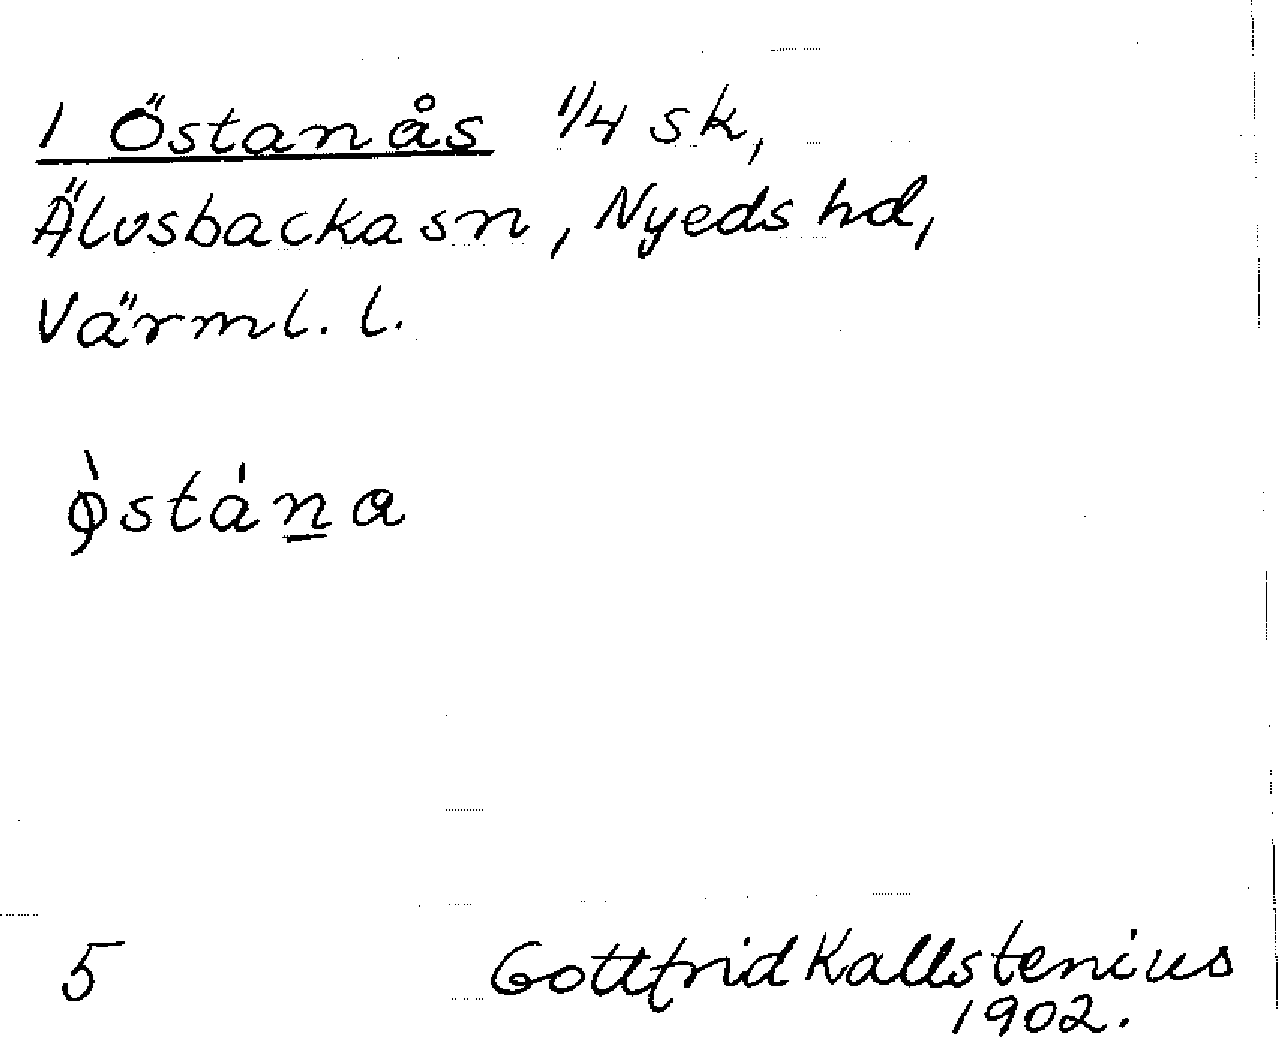 1 Östanås 1/4 sk,
Älvsbacka sn, Nyeds hd,
Värml. l.
ǫ̀stána
5 Gottfrid Kallstenius
1902.